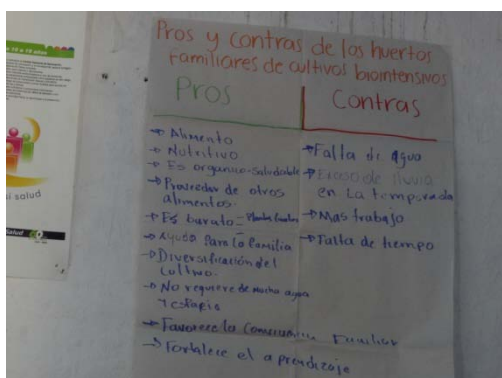 Pros y contras de los huertos
familiares de cultivos biointensivos
Pros
Alimento
Nutritivo
Es organico-saludable
Proveedor de otros
alimentos.
Es barato =
Ayuda Para la familia
Diversificación del
cultivo.
No requiere de mucha agua
y espacio
Favorece la Convivencia Familiar
Fortalece el aprendizaje
Contras
Falta de agua
Exceso de lluvia
en La temporada
Mas trabajo
Falta de tiempo
a 19 años
salud